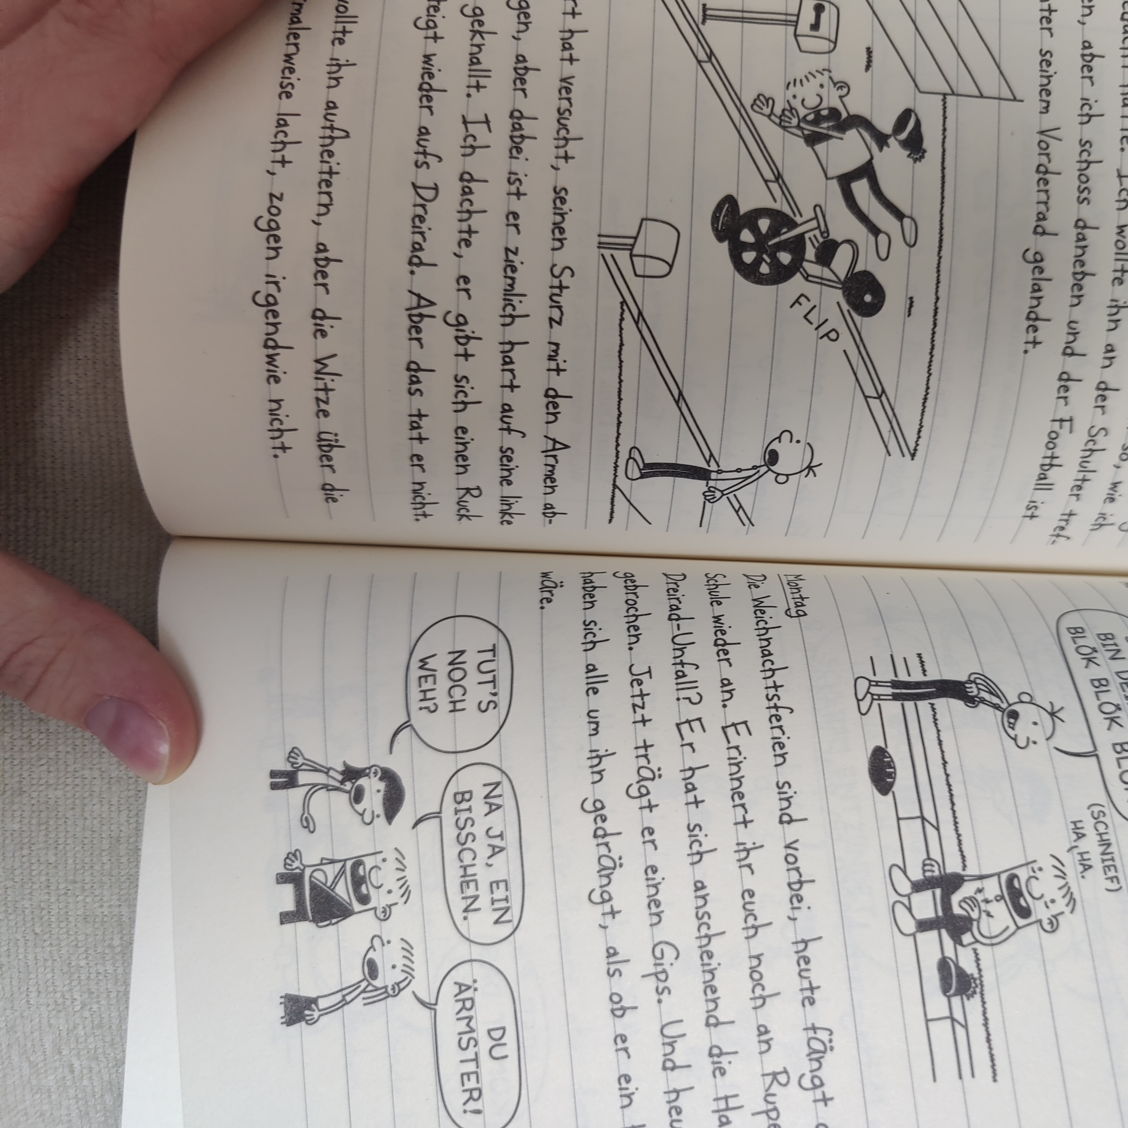 Ich wollte ihn an der Schulter tref-
en, aber ich schoss daneben und der Football ist
ter seinem Vorderrad gelandet.
FLIP
rt hat versucht, seinen Sturz mit den Armen ab-
gen, aber dabei ist er ziemlich hart auf seine linke
geknallt. Ich dachte, er gibt sich einen Ruck
teigt wieder aufs Dreirad. Aber das tat er nicht.
wollte ihn aufheitern, aber die Witze über die
malerweise lacht, zogen irgendwie nicht.
BIN
BLÖK BLÖK BLÖK
(SCHNIEF)
HA, HA.
Montag
Die Weichnachtsferien sind vorbei, heute fängt
Schule wieder an. Erinnert ihr euch noch an Rupe
Dreirad-Unfall? Er hat sich anscheinend die Ha
gebrochen. Jetzt trägt er einen Gips. Und heu
haben sich alle um ihn gedrängt, als ob er ein
wäre.
TUT'S
NOCH
WEH?
NA JA, EIN
BISSCHEN.
DU
ÄRMSTER!